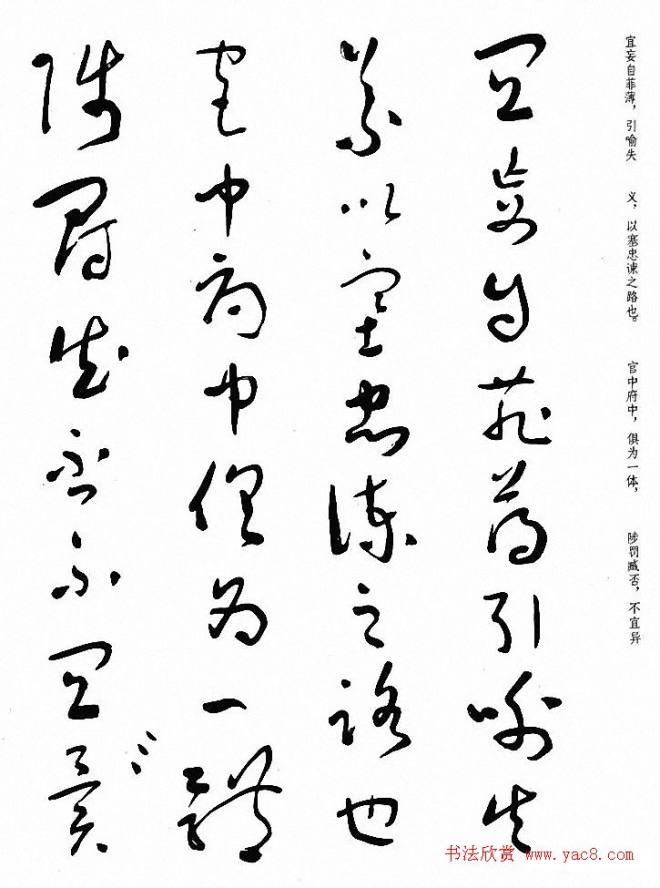 宜妄自菲薄，引喻失 义，以塞忠谏之路也。 官中府中，俱为一体， 陟罚臧否，不宜异
宜妄自菲薄引喻失
義以塞忠諫之路也
宮中府中俱為一體
陟罰臧否不宜異
书法欣赏 www.yac8.com